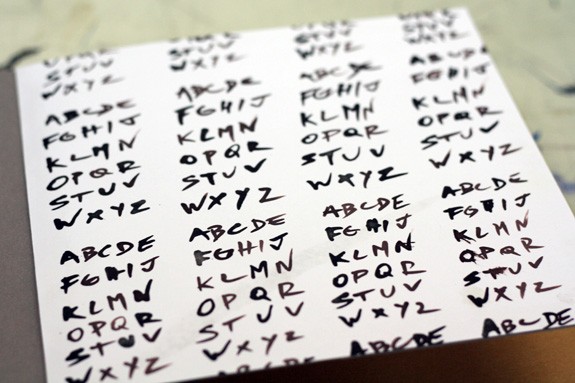 STUV
WXYZ
ABCDE
FGHIJ
KLMN
OPQR
STUV
WXYZ
ABCDE
FGHIJ
KLMN
OPQR
STUV
WXYZ
STUV
WXYZ
ABCDE
FGHIJ
KLMN
OPQR
STUV
WXYZ
ABCDE
FGHIJ
KLMN
OPQR
STUV
WXYZ
STUV
WXYZ
ABCDE
FGHIJ
KLMN
OPQR
STUV
WXYZ
ABCDE
FGHIJ
KLMN
OPQR
STUV
WXYZ
ABCDE
STUV
WXYZ
ABCDE
FGHIJ
KLMN
OPQR
STUV
WXYZ
ABCDE
FGHIJ
KLMN
OPQR
STUV
WXYZ
ABCDE